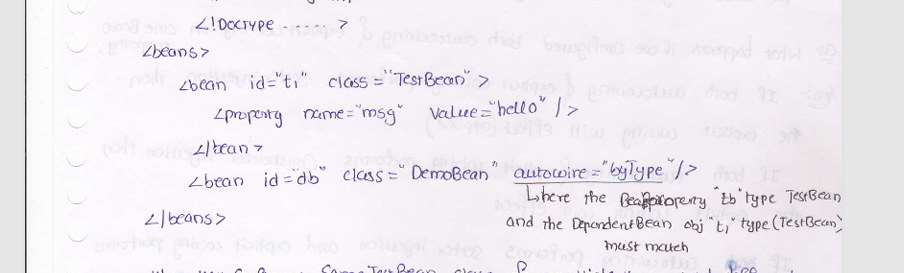 <!DOCTYPE ------ >
<beans>
<bean id="t1" class="TestBean">
<property name="msg" value="hello"/>
</bean>
<bean id="db" class="DemoBean" autowire="byType"/>
↳ here the Bean property "tb" type TestBean
</beans>
and the DependentBean obj "t1" type (TestBean)
must match